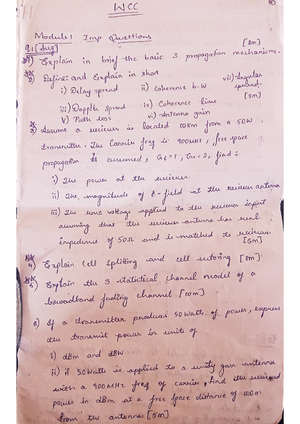 WCC
Module 1 Imp Questions
Q1 [Aug] [8m]
1) Explain in brief the basic 3 propagation mechanisms.
2) Define and Explain in short vii) Angular
i) Delay spread ii) Coherence b.w spread.
iii) Doppler spread iv) Coherence time [8m]
v) Path loss vi) Antenna gain
3) Assume a reciever is located 10km from a 50W
transmitter. The Carrier freq is 900MHz, free space
propagation is assumed, Gt=1, Gr=2, find:
i) The power at the reciever
ii) The magnitude of E-field at the reciever antenna
iii) The rms voltage applied to the reciever input
assuming that the reciever antenna has real
impedence of 50Ω and is matched to reciever
[6m]
4) Explain Cell splitting and cell sectoring [8m]
5) Explain the 3 statistical channel model of a
broadband fading channel [10m]
6) If a transmitter produces 50 Watts of power, express
the transmit power in units of
i) dBm and dBW
ii) if 50Watts is applied to a unity gain antenna
with a 900MHz freq of carrier, find the recieved
power in dBm at a free space distance of 100m
from the antenna [5m]